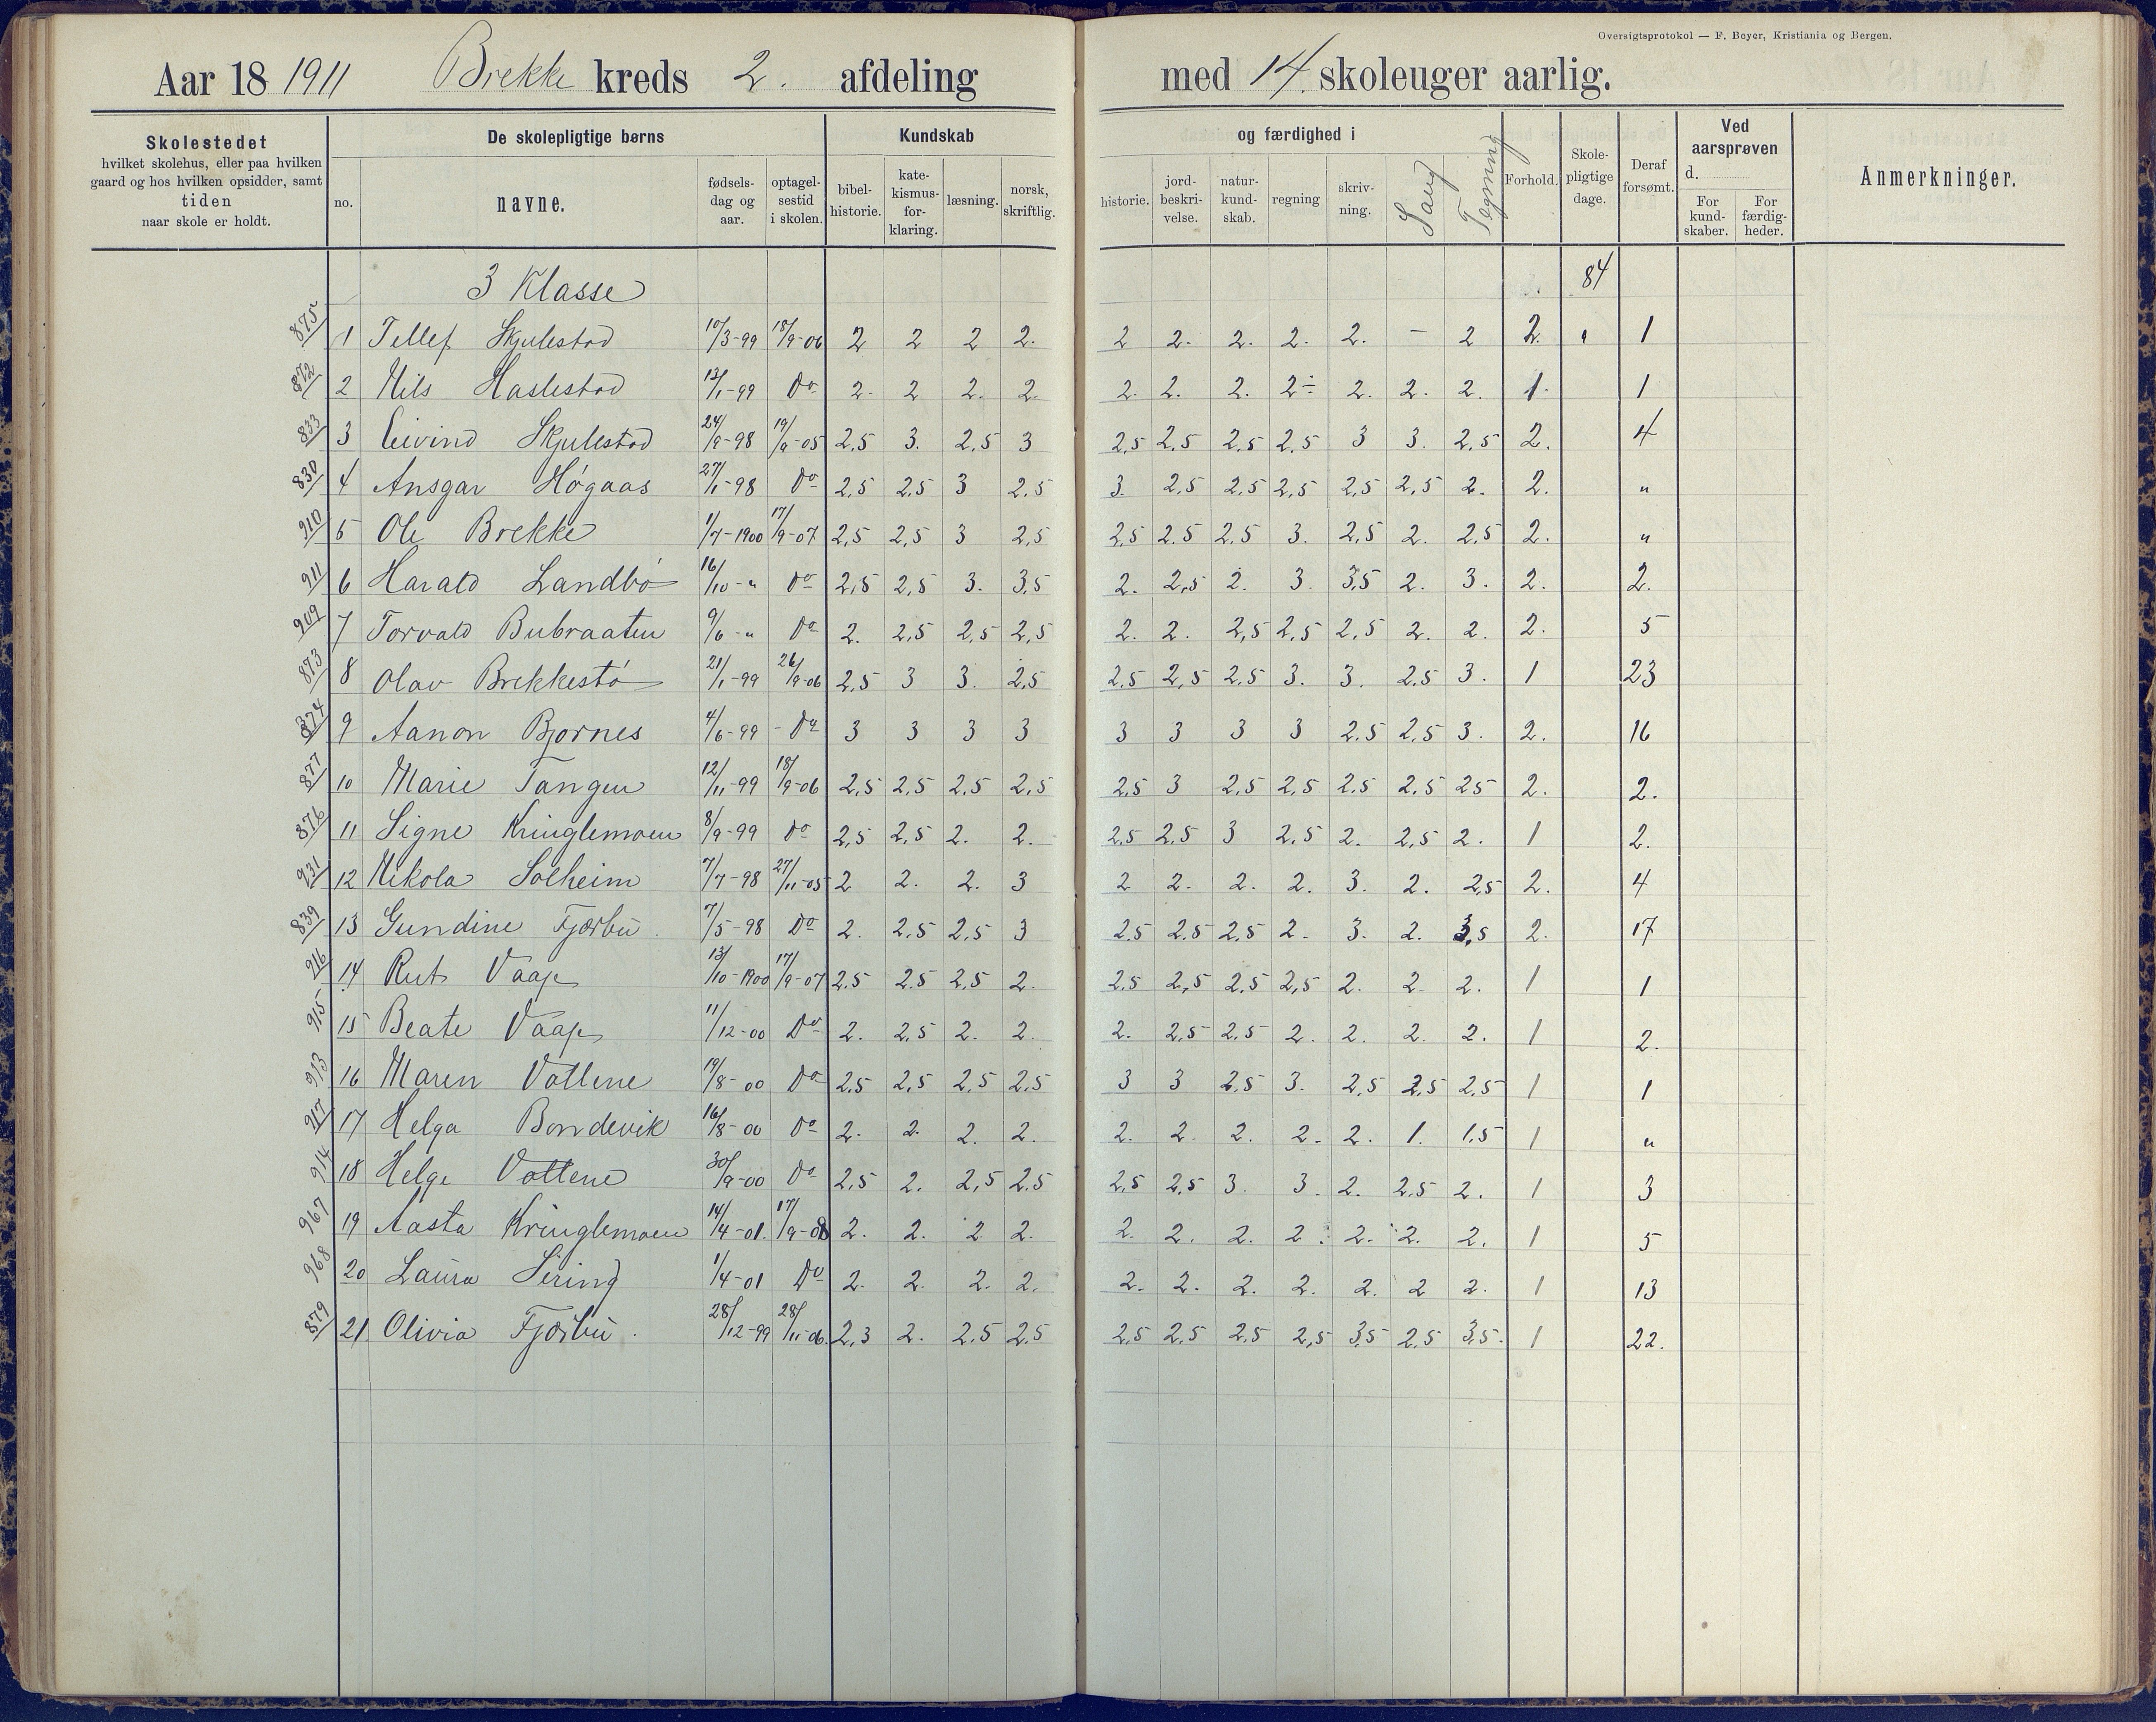 Oversigtsprotokol — F. Beyer, Kristiania og Bergen.
Aar 18 1911 Brekke kreds 2. afdeling med 14. skoleuger aarlig.
Skolestedet hvilket skolehus, eller paa hvilken gaard og hos hvilken opsidder, samt tiden naar skole er holdt.
De skolepligtige børns
no. navne. fødselsdag og aar. optagelsestid i skolen.
Kundskab og færdighed i
bibelhistorie. katekismusforklaring. læsning. norsk, skriftlig. historie. jordbeskrivelse. naturkundskab. regning skrivning. Sang Tegning
Forhold. Skolepligtige dage. Deraf forsømt.
Ved aarsprøven d.
For kundskaber. For færdigheder.
Anmerkninger.
3 Klasse 84
875 1 Tellef Skjulestad 10/3-99 18/9-06 2 2 2 2. 2 2. 2. 2. 2. – 2 2. " 1
872 2 Nils Haslestad 13/1-99 Do 2. 2 2. 2. 2. 2. 2. 2÷ 2. 2. 2. 1. 1
833 3 Eivind Skjulestad 24/9-98 19/9-05 2,5 3. 2,5 3 2,5 2,5 2,5 2,5 3 3. 2,5 2. 4
830 4 Ansgar Høgaas 27/1-98 Do 2,5 2,5 3 2,5 3. 2,5 2,5 2,5 2,5 2,5 2. 2. "
910 5 Ole Brekke 1/7-1900 17/9-07 2,5 2,5 3 2,5 2,5 2.5 2,5 3. 2,5 2. 2,5 2. "
911 6 Harald Landbø 16/10-" Do 2,5 2,5 3. 3,5 2. 2,5 2. 3. 3,5 2. 3. 2. 2.
909 7 Torvald Bubraaten 9/6-" Do 2. 2,5 2,5 2,5 2. 2. 2,5 2,5 2,5 2. 2. 2. 5
873 8 Olav Brekkestø 21/1-99 26/9-06 2,5 3 3. 2,5 2,5 2,5 2,5 3. 3. 2.5 3. 1 23
874 9 Aanon Bjørnes 4/6-99 - Do 3 3 3 3 3 3 3 3 2.5 2,5 3. 2. 16
877 10 Marie Tangen 12/11-99 18/9-06 2,5 2,5 2,5 2,5 2,5 3 2,5 2,5 2.5 2,5 25 2. 2.
876 11 Signe Kringlemoen 8/9-99 Do 2,5 2,5 2. 2. 2,5 2,5 3 2,5 2. 2,5 2. 1 2.
931 12 Nikola Solheim 7/7-98 27/11-05 2 2. 2. 3 2 2. 2. 2. 3. 2. 2,5 2. 4
839 13 Gundine Fjærbu. 7/5-98 Do 2. 2.5 2,5 3 2.5 2.5 2,5 2. 3. 2. 3,5 2. 17
916 14 Rut Vaage 13/10-1900 17/9-07 2.5 2.5 2,5 2. 2,5 2,5 2,5 2,5 2. 2. 2. 1 1
915 15 Beate Vaage 11/12-00 Do 2. 2,5 2. 2. 2. 2,5 2,5 2. 2. 2. 2. 1 2.
913 16 Maren Vallene 19/8-00 Do 2,5 2,5 2,5 2,5 3 3 2,5 3. 2,5 2,5 2,5 1 1
917 17 Helga Bondevik 16/8-00 Do 2. 2. 2. 2. 2. 2. 2. 2. 2. 1. 1,5 1 "
914 18 Helge Vallene 30/9-00 Do 2,5 2. 2,5 2.5 2,5 2,5 3. 3. 2. 2,5 2. 1 3
967 19 Aasta Kringlemoen 14/4-01. 17/9-08 2. 2. 2. 2. 2. 2. 2. 2. 2. 2. 2. 1 5
968 20 Laura Sering 1/4-01 Do 2. 2. 2. 2. 2. 2. 2. 2. 2. 2 2. 1 13
879 21 Olivia Fjærbu. 28/12-99 28/11-06. 2,3 2. 2,5 2,5 2,5 2,5 2,5 2,5 3,5 2,5 3,5. 1 22.